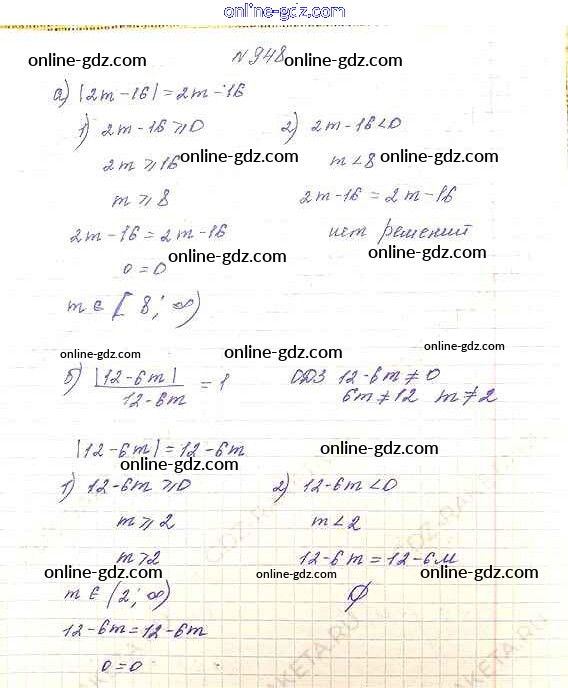 online-gdz.com
N 948
online-gdz.com online-gdz.com
а) |2m-16|=2m-16
1) 2m-16⩾0 2) 2m-16<0
2m⩾16 online-gdz.com m<8 online-gdz.com
m⩾8 2m-16=2m-16
2m-16=2m-16 нет решений
online-gdz.com online-gdz.com
0=0
m∈[8; ∞)
online-gdz.com online-gdz.com online-gdz.com
б) |12-6m| / 12-6m = 1 ОДЗ 12-6m≠0
6m≠12 m≠2
|12-6m|=12-6m online-gdz.com
online-gdz.com
1) 12-6m⩾0 2) 12-6m<0
m⩾2 m<2
m>2 12-6m=12-6м
online-gdz.com online-gdz.com online-gdz.com
m∈(2; ∞) ∅
12-6m=12-6m
0=0
online-gdz.com online-gdz.com online-gdz.com